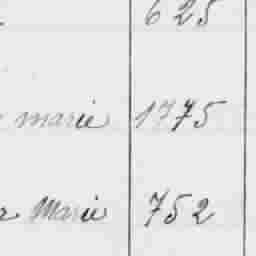 625
marie 1375
Marie 752